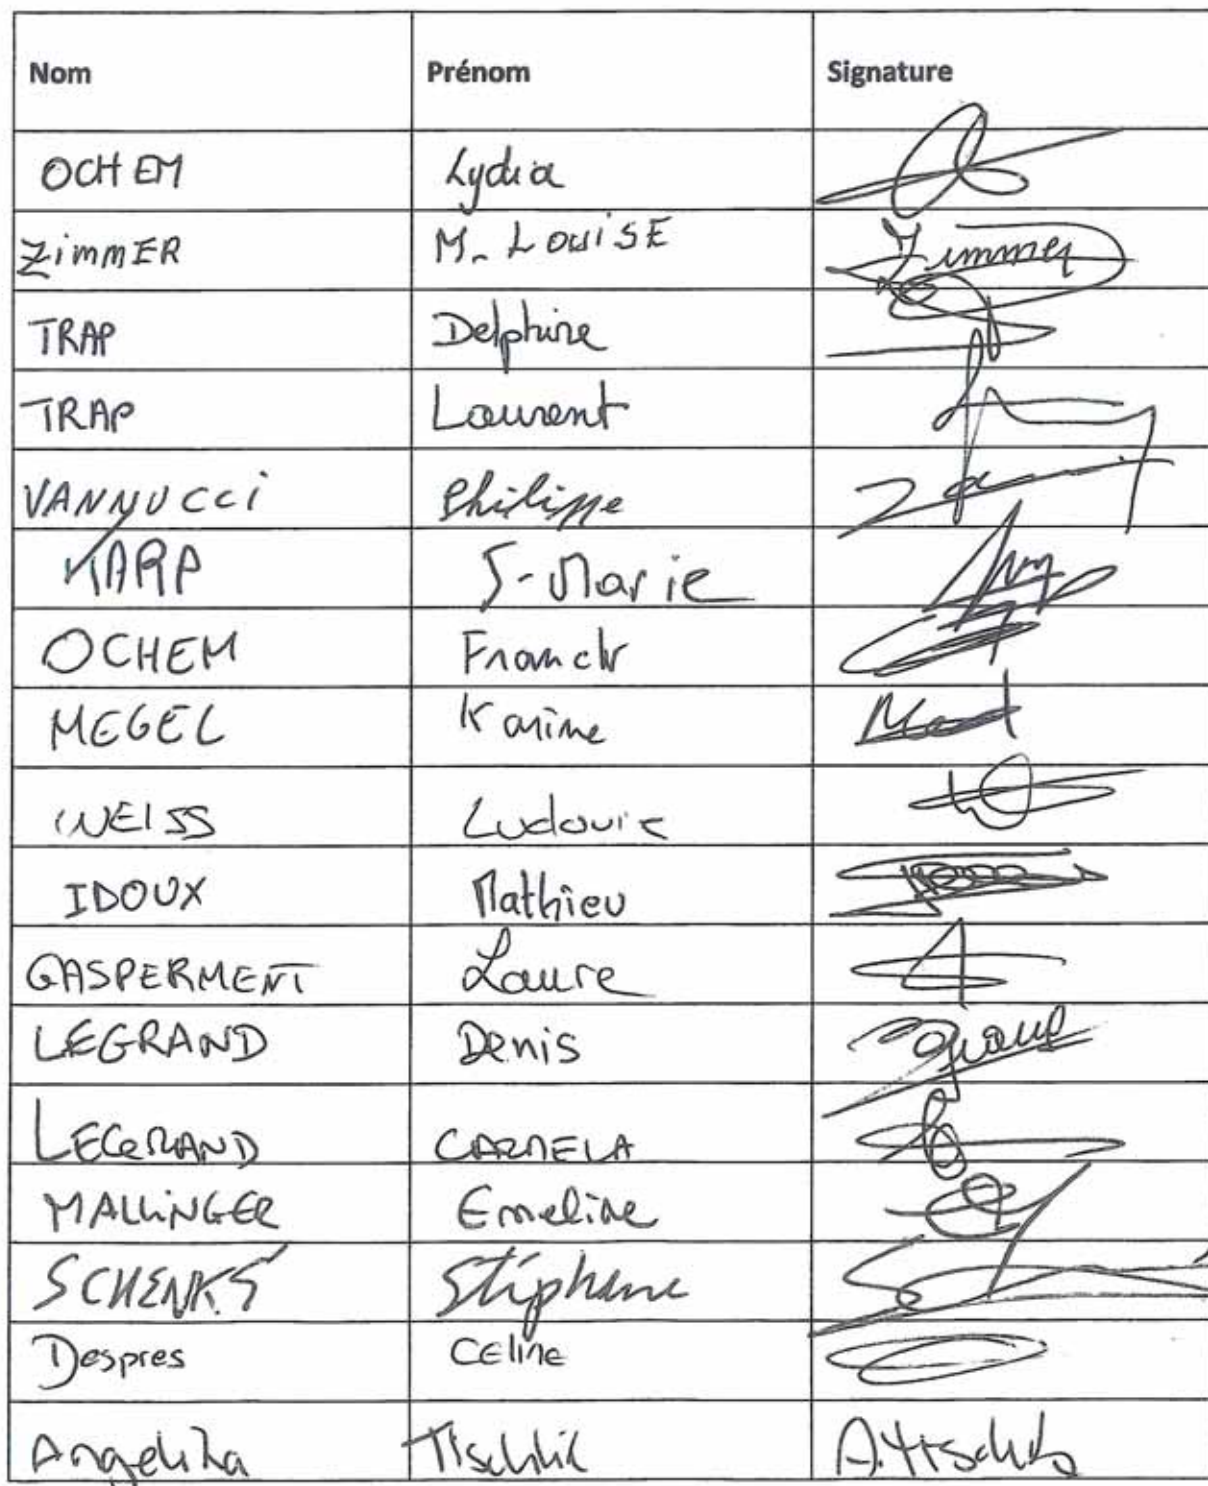 Nom Prénom Signature
OCHEM Lydia
ZimmER M. LOUISE Zimmer
TRAP Delphine
TRAP Laurent
VANNUCCi Philippe
KARP J-Marie
OCHEM Franck
MEGEL Karine
WEISS Ludovic
IDOUX Mathieu
GASPERMENT Laure
LEGRAND Denis
LEGRAND CARMELA
MALLiNGER Emeline
SCHENKS Stéphane
Despres CEline
Angelika